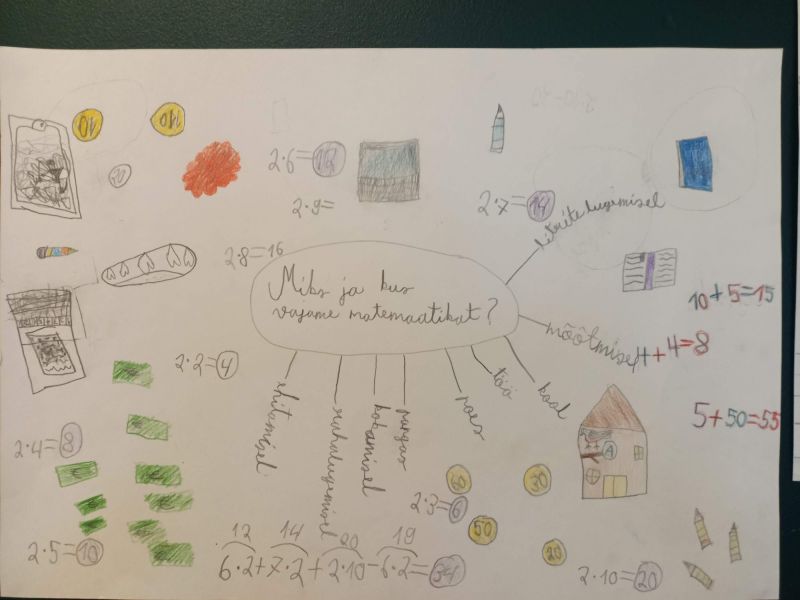 10
10
20
2·6=12
2·9=
2·7=14
liitrite lugemisel
2·8=16
Miks ja kus
vajame matemaatikat?
10+5=15
mõõtmisel
4+4=8
2·2=4
ehitamisel
rahalugemisel
kokamisel
pangas
poes
töö
kool
5+50=55
A
2·4=8
30
50
20
2·3=6
2·5=10
12 14 20 19
6·2+7·2+2·10-6·2=34
2·10=20